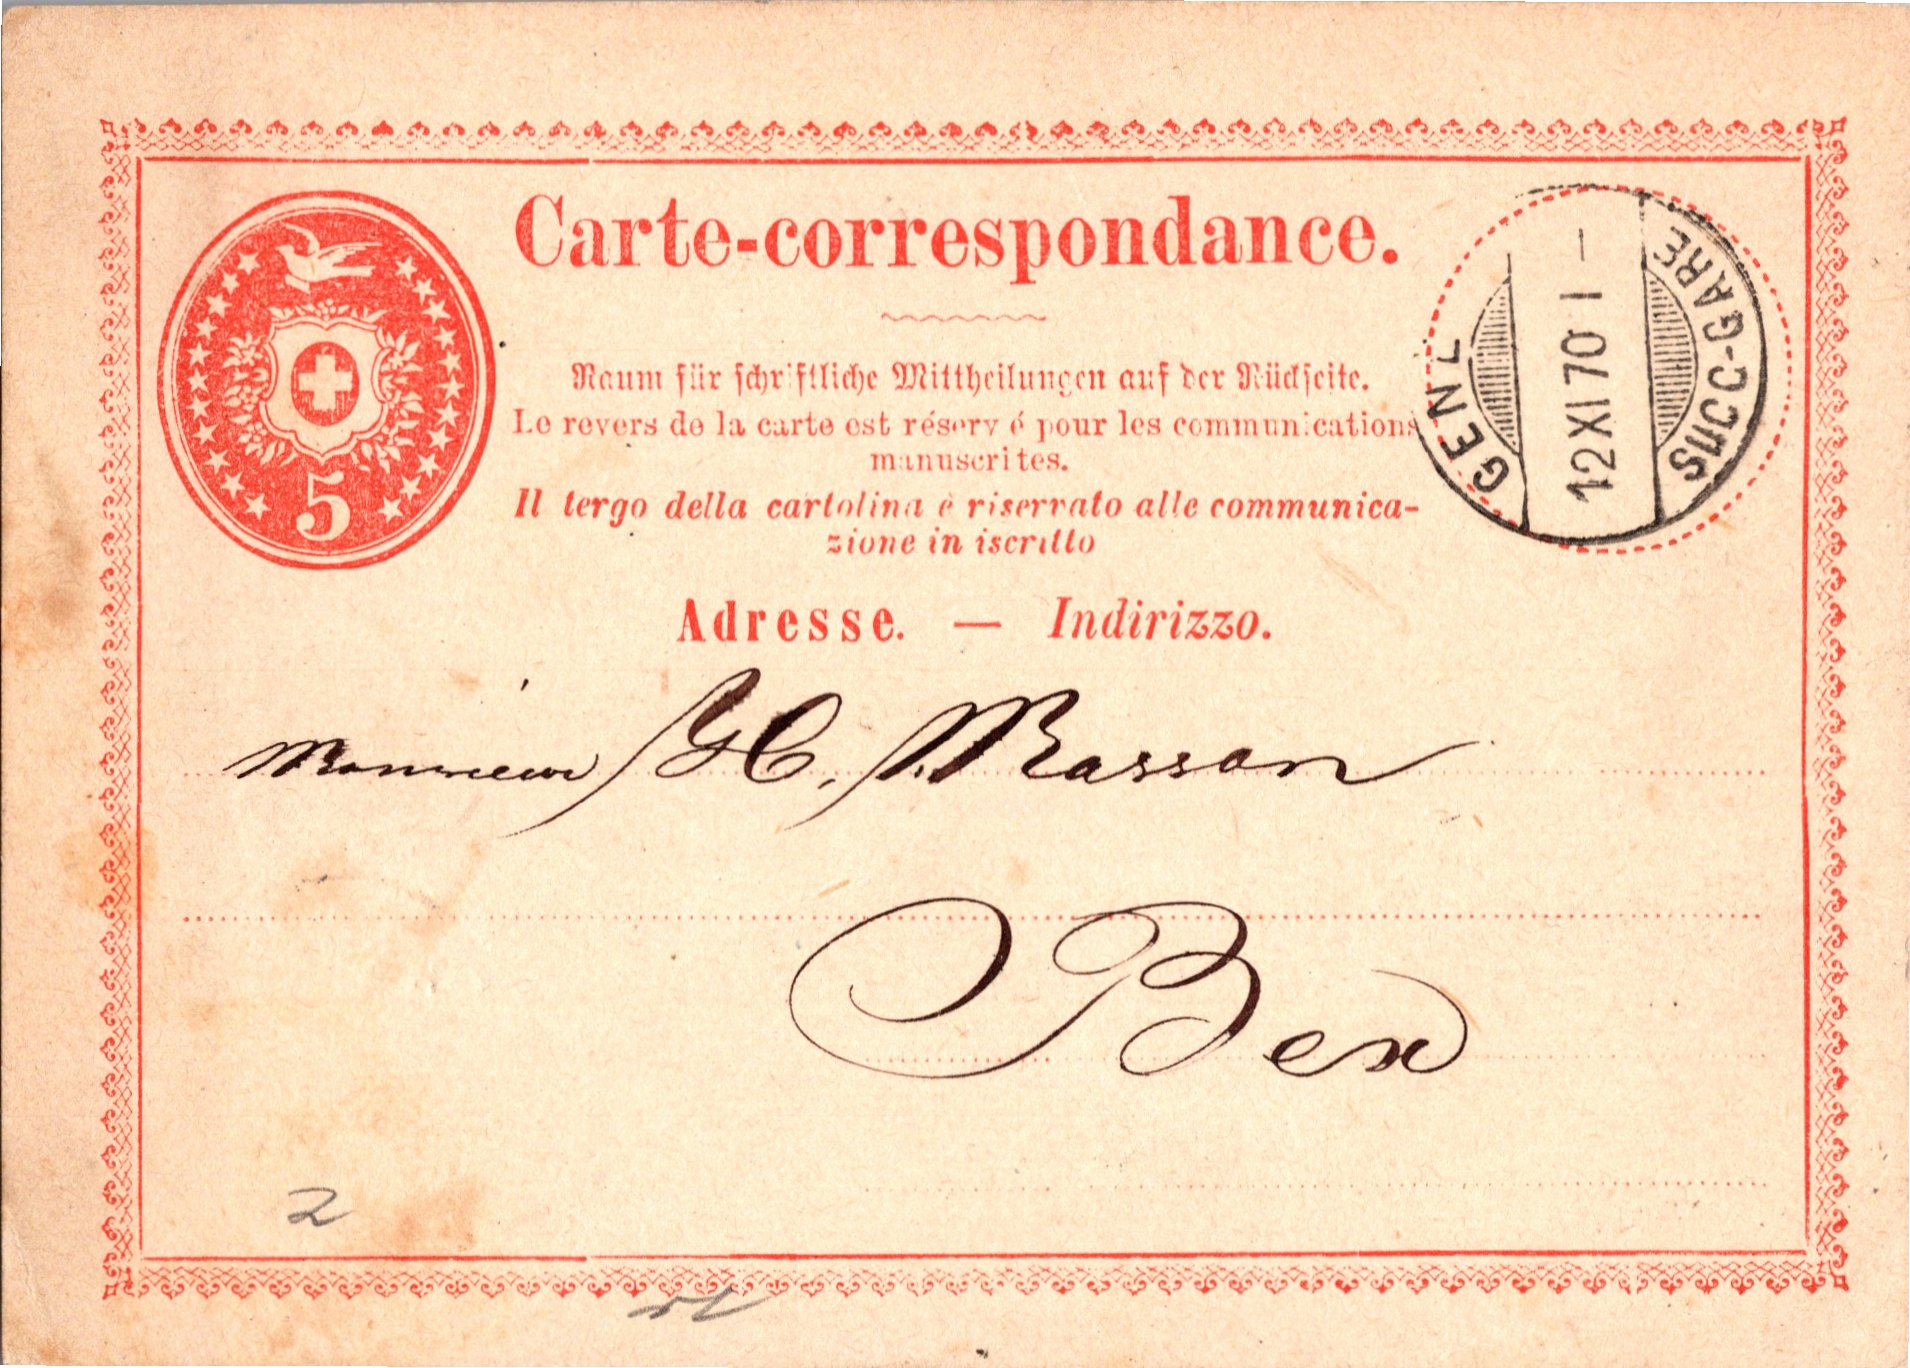 Carte-correspondance.
5
Raum für schriftliche Mittheilungen auf der Rückseite.
Le revers de la carte est réservé pour les communications
manuscrites.
Il tergo della cartolina è riservato alle communica-
zione in iscritto
GENL SUCC-GARE
12 XI 70 I –
Adresse. — Indirizzo.
Monsieur H. Masson
Bex
2